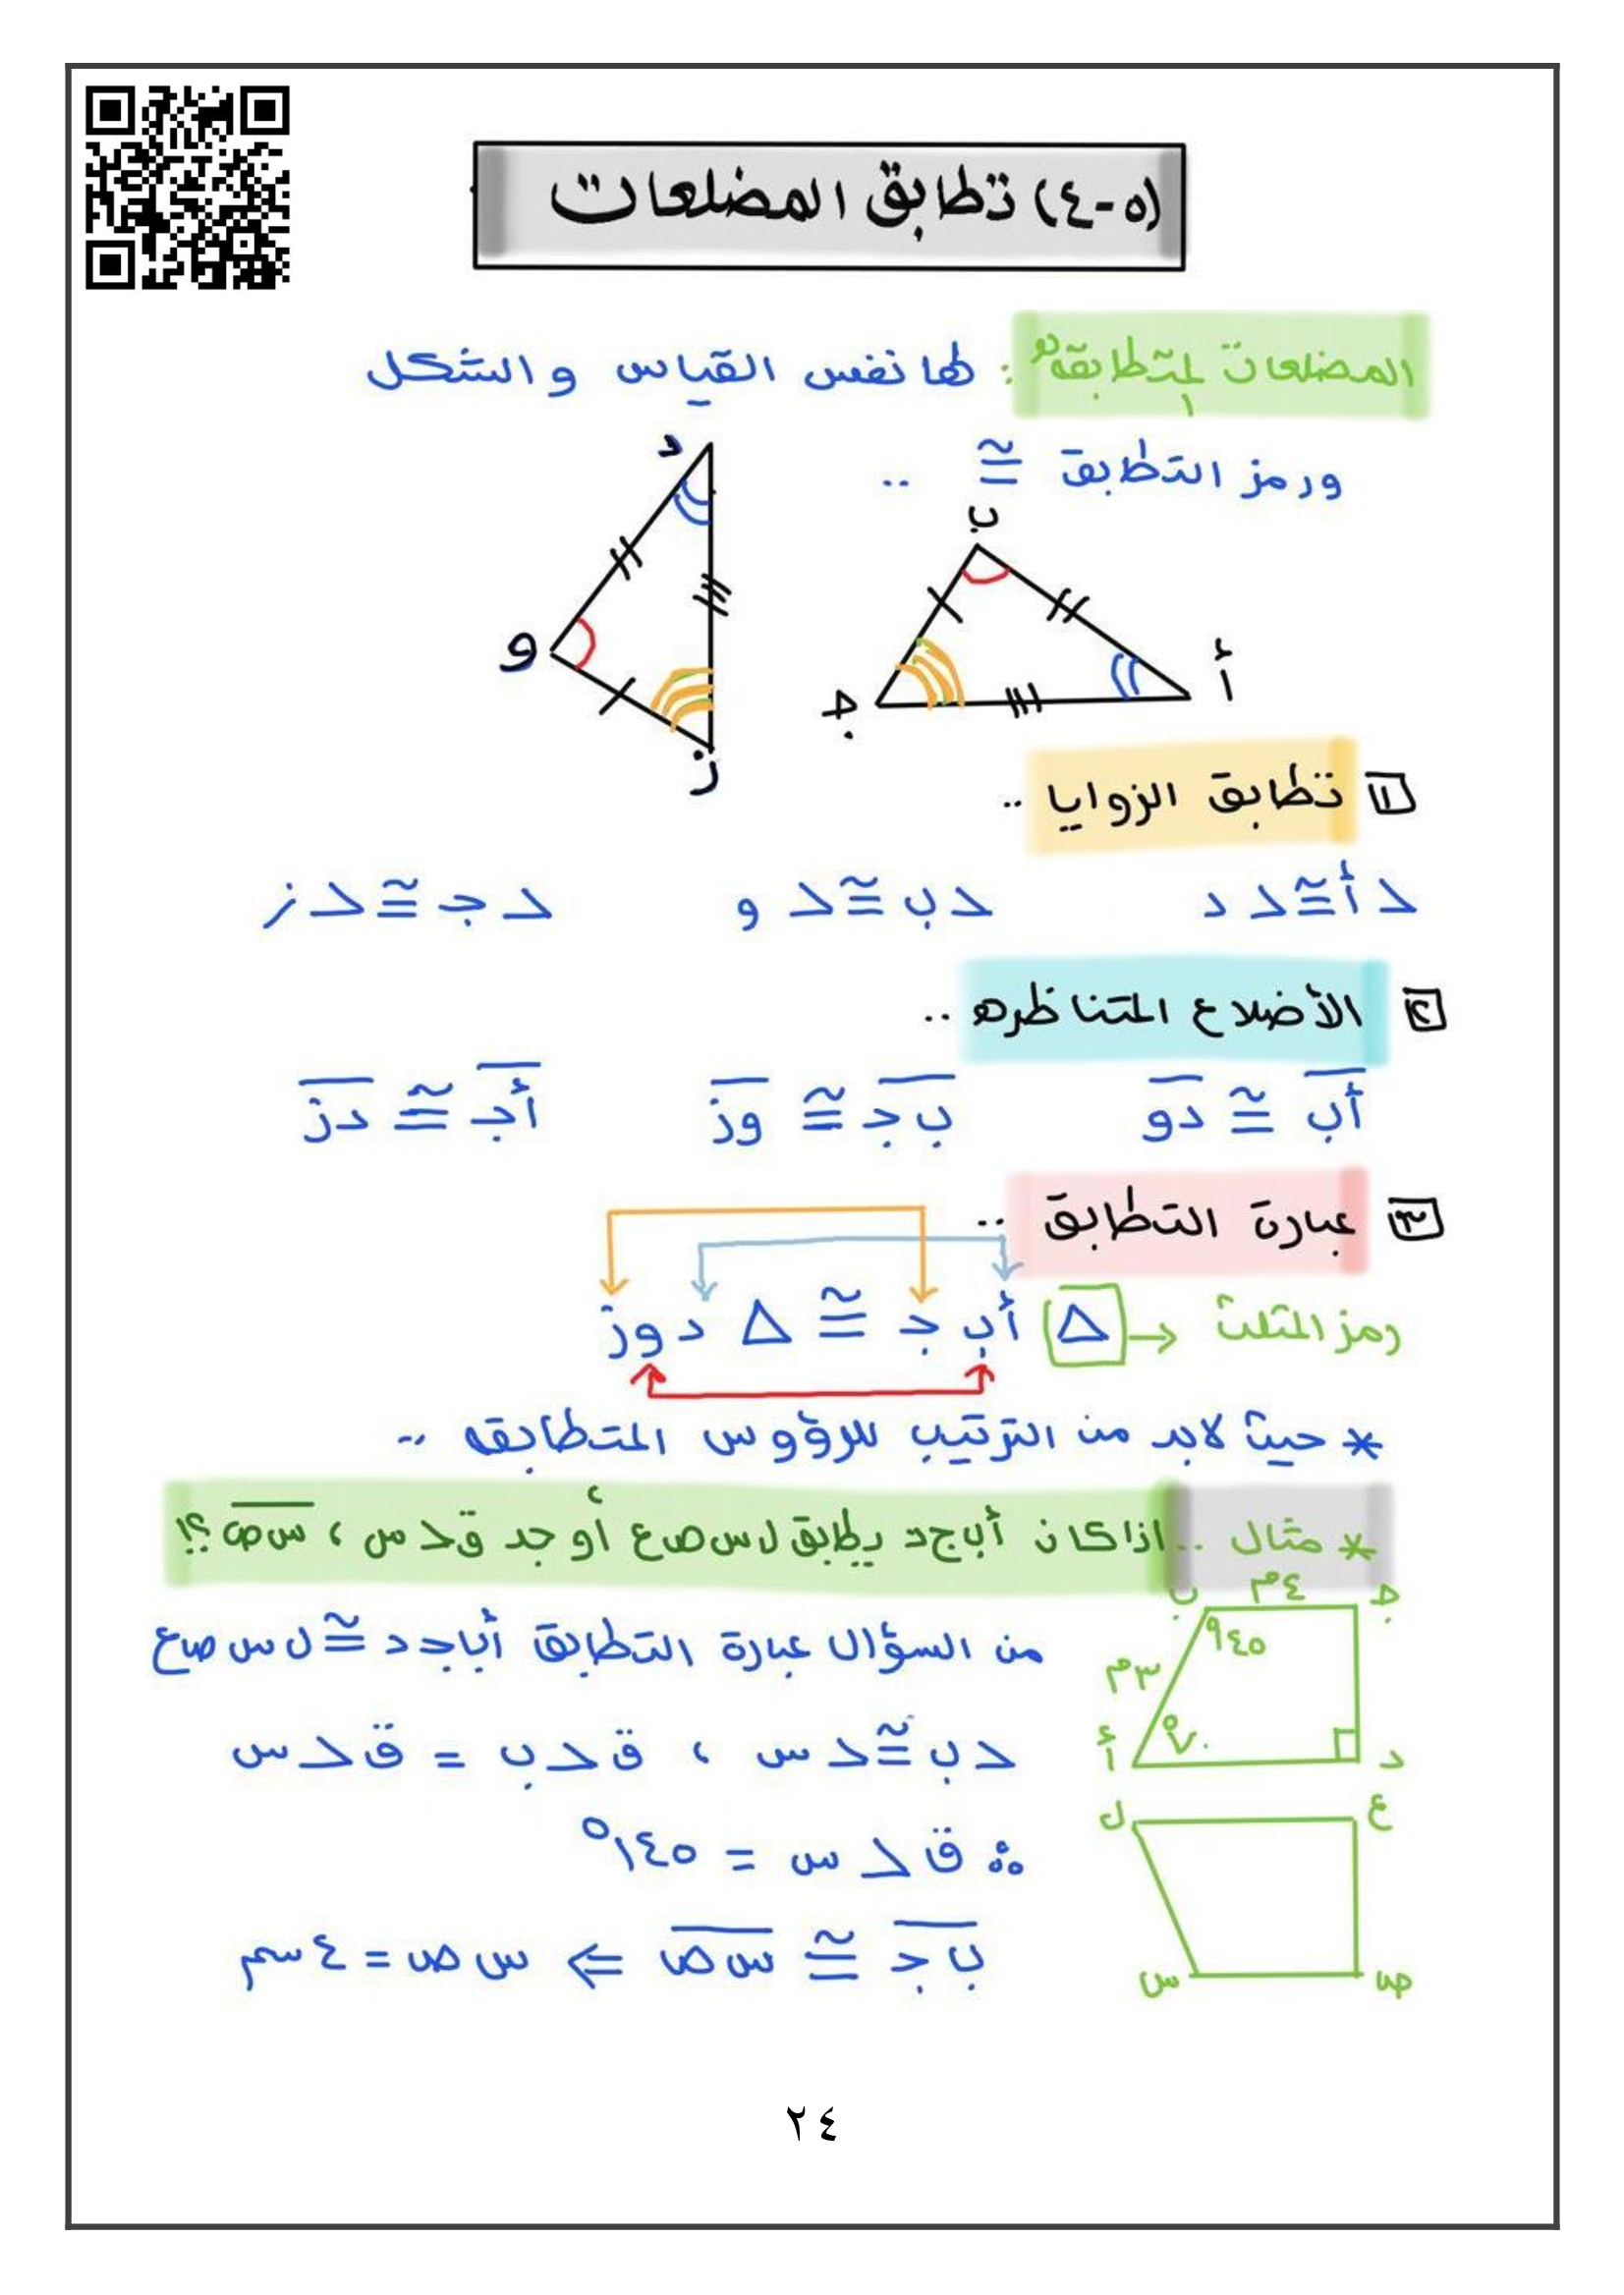 (٥-٤) تطابق المضلعات
المضلعات المتطابقه : لها نفس القياس و الشكل
ورمز التطابق ≅ ..
د
ب
و
أ
جـ
ز
١ تطابق الزوايا ..
> أ ≅ > د    > ب ≅ > و    > جـ ≅ > ز
٢ الأضلاع المتناظره ..
أب ≅ دو    ب جـ ≅ وز    أجـ ≅ دز
٣ عبارة التطابق ..
رمز المثلث → Δ أب جـ ≅ Δ دوز
* حيث لابد من الترتيب للرؤوس المتطابقه ..
* مثال .. اذا كان أب جـ د يطابق ل س ص ع ، أوجد ق > س ، س ص ؟!
ب ٤م جـ
٣م
أ ٧٠° د
من السؤال عبارة التطابق أباجـ د ≅ ل س ص ع
> ب ≅ > س ، ق > ب = ق > س
ل ع
∴ ق > س = ١٤٥°
ب جـ ≅ س ص ⇐ س ص = ٤ سم
س ص
٢٤